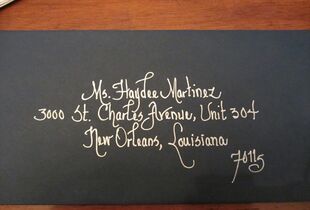 Ms. Haydee Martinez
3000 St. Charles Avenue, Unit 304
New Orleans, Louisiana
70115